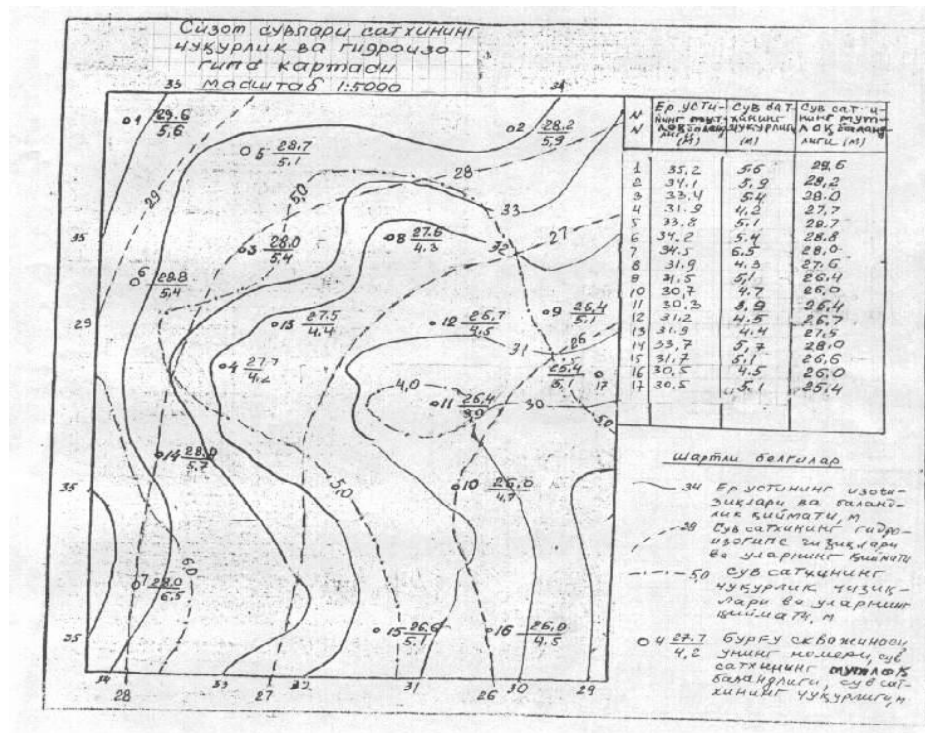 Сизот сувлари сатхининг
чуқурлик ва гидроизо-
гипс картаси
масштаб 1:5000
35
34
1 29.6
5,6
2 28.2
5,9
5 28.7
5.1
29
5,0
28
33
27
35
3 28.0
5,4
8 27.6
4.3
32
6 28.8
5,4
29
13 27.5
4.4
12 26,7
4,5
9 26.4
5.1
26
31
4 27.7
4,2
25.4
5,1
17
4,0
11 26.4
3.9
30
5,0
14 28.0
5,7
35
5,0
10 26,0
4,7
7 28.0
6,5
6,0
25
15 26.6
5,1
16 26,0
4,5
34
28
33
27
32
31
26
30
29
N
N
Ер усти-
нинг мут-
лоқ баланд-
лиги
(м)
Сув сат-
хининг
чуқурлиги
(м)
Сув сат-и-
нинг мут-
лоқ баланд-
лиги (м)
1 35,2 5,6 29.6
2 34,1 5,9 28,2
3 33,4 5.4 28.0
4 31.9 4,2 27.7
5 33.8 5,1 28.7
6 34.2 5.4 28.8
7 34,5 6.5 28,0
8 31,9 4,3 27.6
9 31,5 5,1 26.4
10 30,7 4.7 26,0
11 30.3 3,9 26.4
12 31,2 4,5 26,7
13 31.9 4.4 27,5
14 33,7 5,7 28,0
15 31,7 5,1 26,6
16 30,5 4.5 26,0
17 30.5 5,1 25.4
Шартли белгилар
34 Ер устининг изоги-
зиқлари ва баланд-
лик қиймати, м
28 Сув сатхининг гидро-
изогипс чизиқлари
ва уларнинг қиймати
5,0 Сув сатхининг
чуқурлик чизиқ-
лари ва уларнинг
қиймати, м
4 27.7
4,2
Бурғу скважинаси
унинг номери, сув
сатхининг мутлоқ
баландлиги, сув сат-
хининг чуқурлиги, м